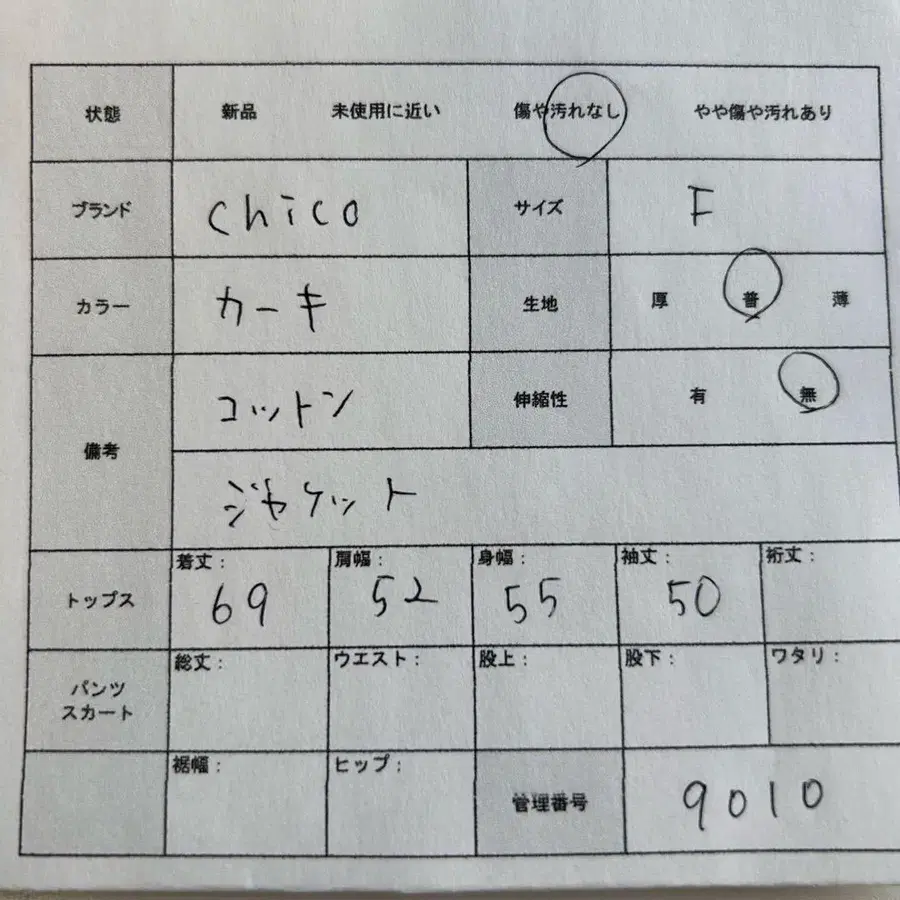 状態 新品 未使用に近い 傷や汚れなし やや傷や汚れあり
ブランド chico サイズ F
カラー カーキ 生地 厚 普 薄
備考 コットン 伸縮性 有 無
ジャケット
トップス 着丈：69 肩幅：52 身幅：55 袖丈：50 裄丈：
パンツ
スカート 総丈： ウエスト： 股上： 股下： ワタリ：
裾幅： ヒップ： 管理番号 9010